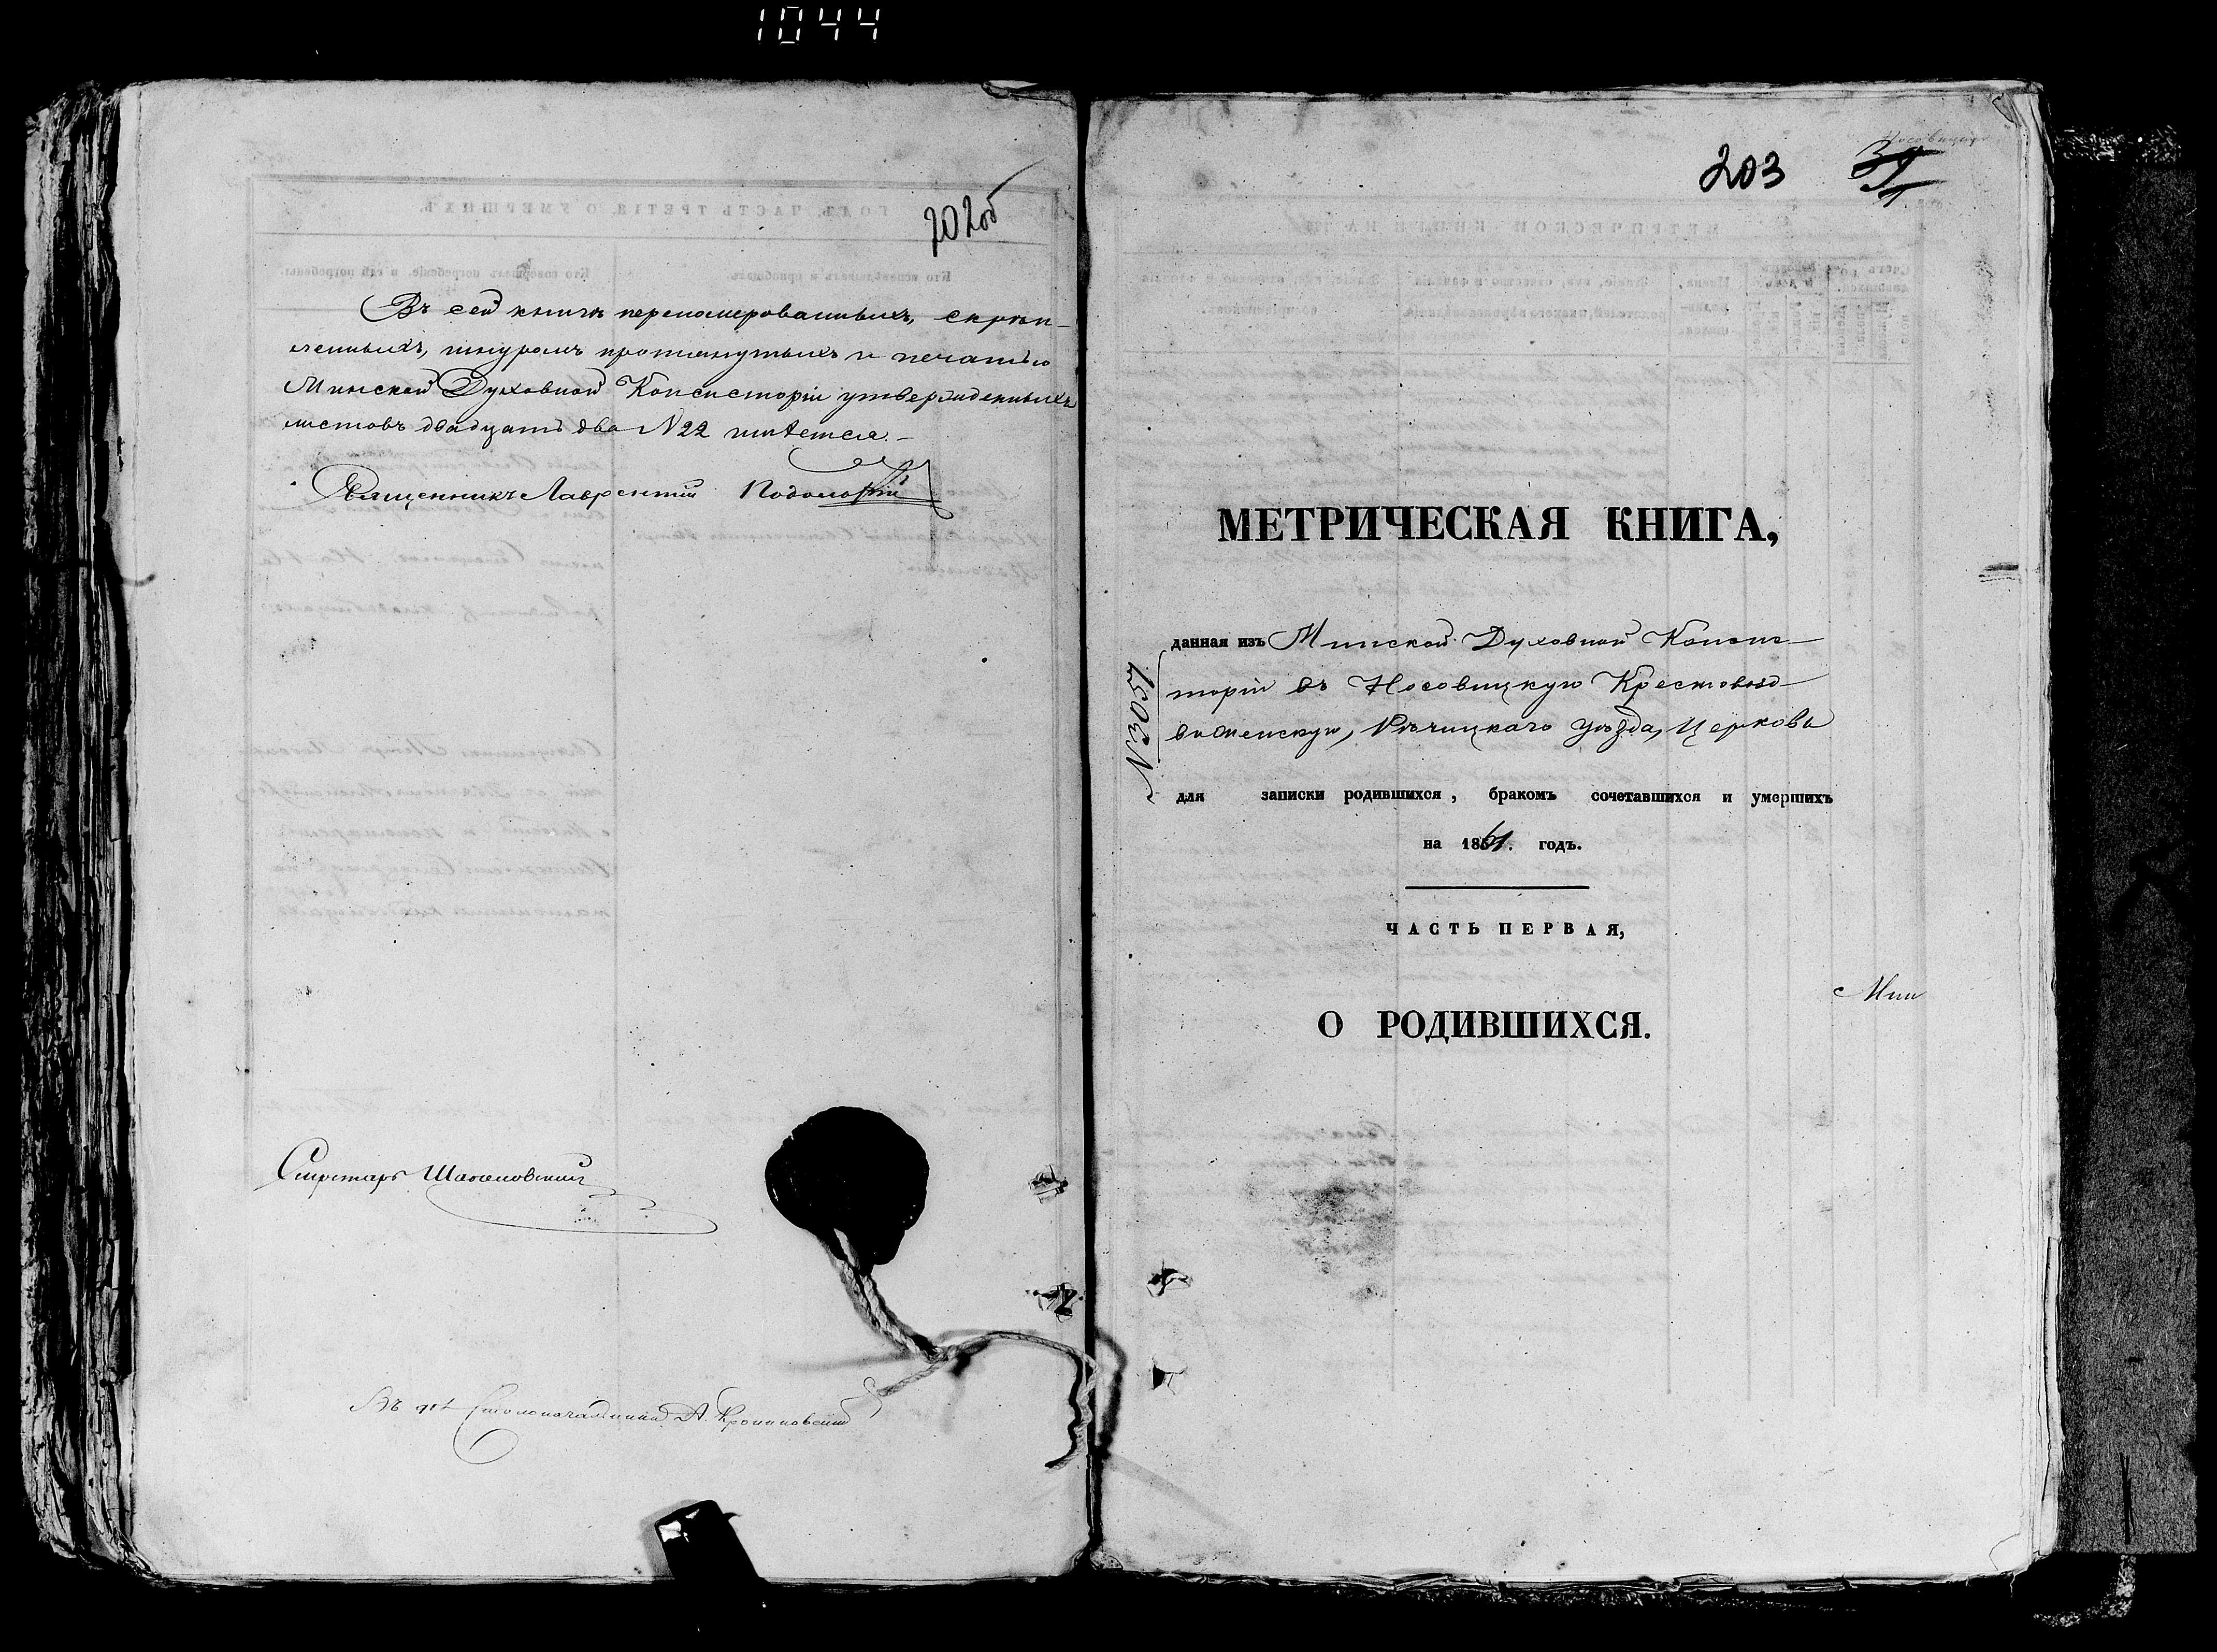 1044
202об
Въ сей книгѣ перенумерованныхъ, скрѣп-
ленныхъ, шнуромъ протянутыхъ и печатью
Минской Духовной Консисторіи утвержденныхъ
листовъ двадцать два №22 имѣется.-
Священникъ Лаврентій
Секретарь
Столоначальника А.
203
МЕТРИЧЕСКАЯ КНИГА,
данная изъ Минской Духовной Консис-
торіи въ Носовицкую Крестовозд-
виженскую, Рѣчицкаго уѣзда, Церковь
№3057
для записки родившихся, бракомъ сочетавшихся и умершихъ
на 1861. годъ.
ЧАСТЬ ПЕРВАЯ,
Мин
О РОДИВШИХСЯ.